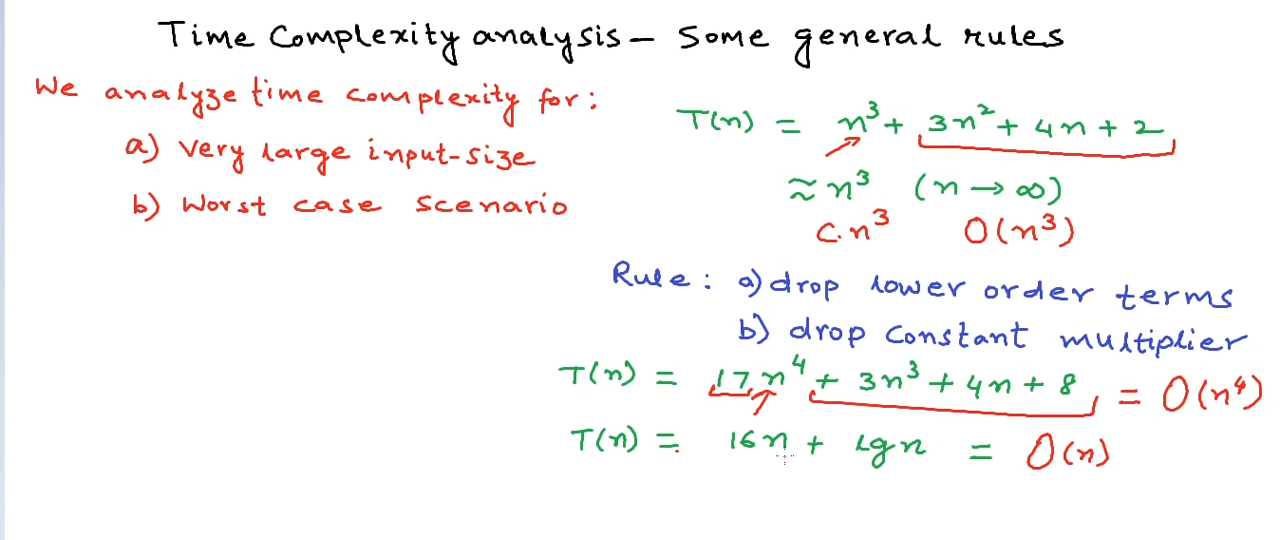 Time Complexity analysis – Some general rules
We analyze time complexity for:
a) very large input-size
b) worst case scenario
T(n) = n³ + 3n² + 4n + 2
≈ n³ (n → ∞)
C.n³ O(n³)
Rule: a) drop lower order terms
b) drop constant multiplier
T(n) = 17n⁴ + 3n³ + 4n + 8 = O(n⁴)
T(n) = 16n + lgn = O(n)